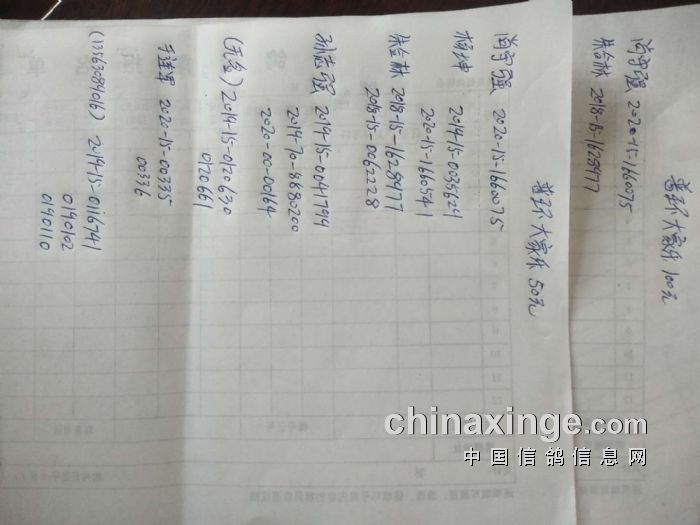 普环大家乐 100元
尚守强 2020-15-1660075
朱合林 2018-15-1628977
普环大家乐 50元
尚守强 2020-15-1660075
杨坤 2019-15-0035621
2020-15-1660541
朱合林 2018-15-1628977
2018-15-0062228
孙志强 2019-15-0041794
2019-70-8880200
2020-00-00164
(无名) 2019-15-0120630
0120661
2020-15-00335
00336
(13563089016) 2019-15-0116741
0190102
0190110
chinaxinge.com
中国信鸽信息网